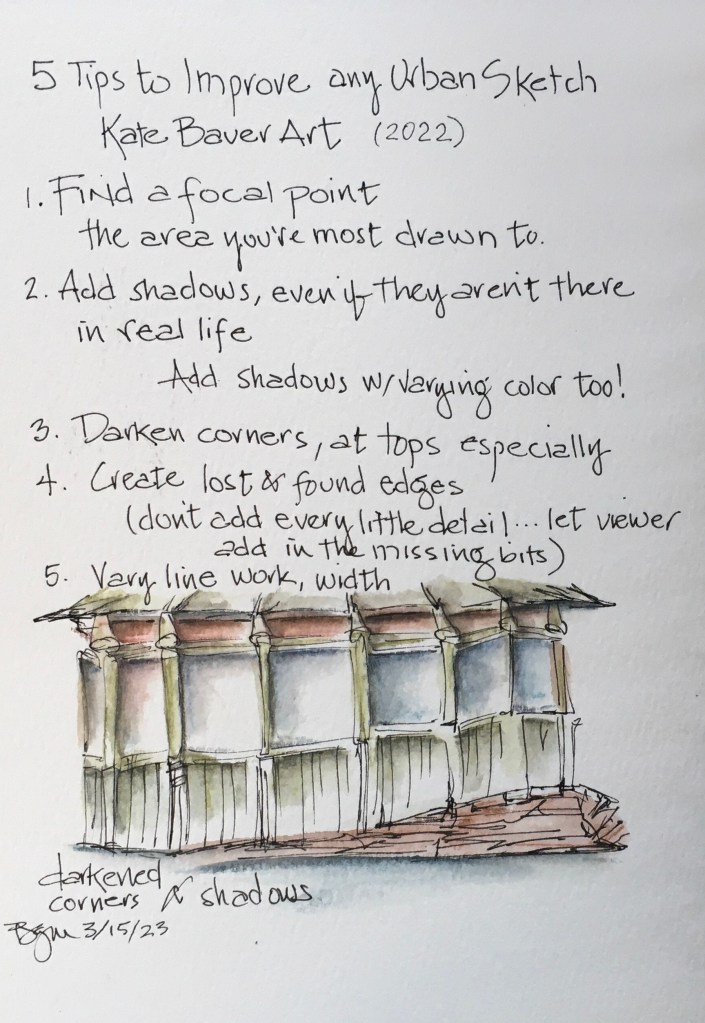 5 Tips to Improve any Urban Sketch
Kate Bauer Art (2022)
1. Find a focal point
the area you're most drawn to.
2. Add shadows, even if they aren't there
in real life
Add shadows w/varying color too!
3. Darken corners, at tops especially
4. Create lost & found edges
(don't add every little detail... let viewer
add in the missing bits)
5. Vary line work, width
darkened
corners & shadows
3/15/23